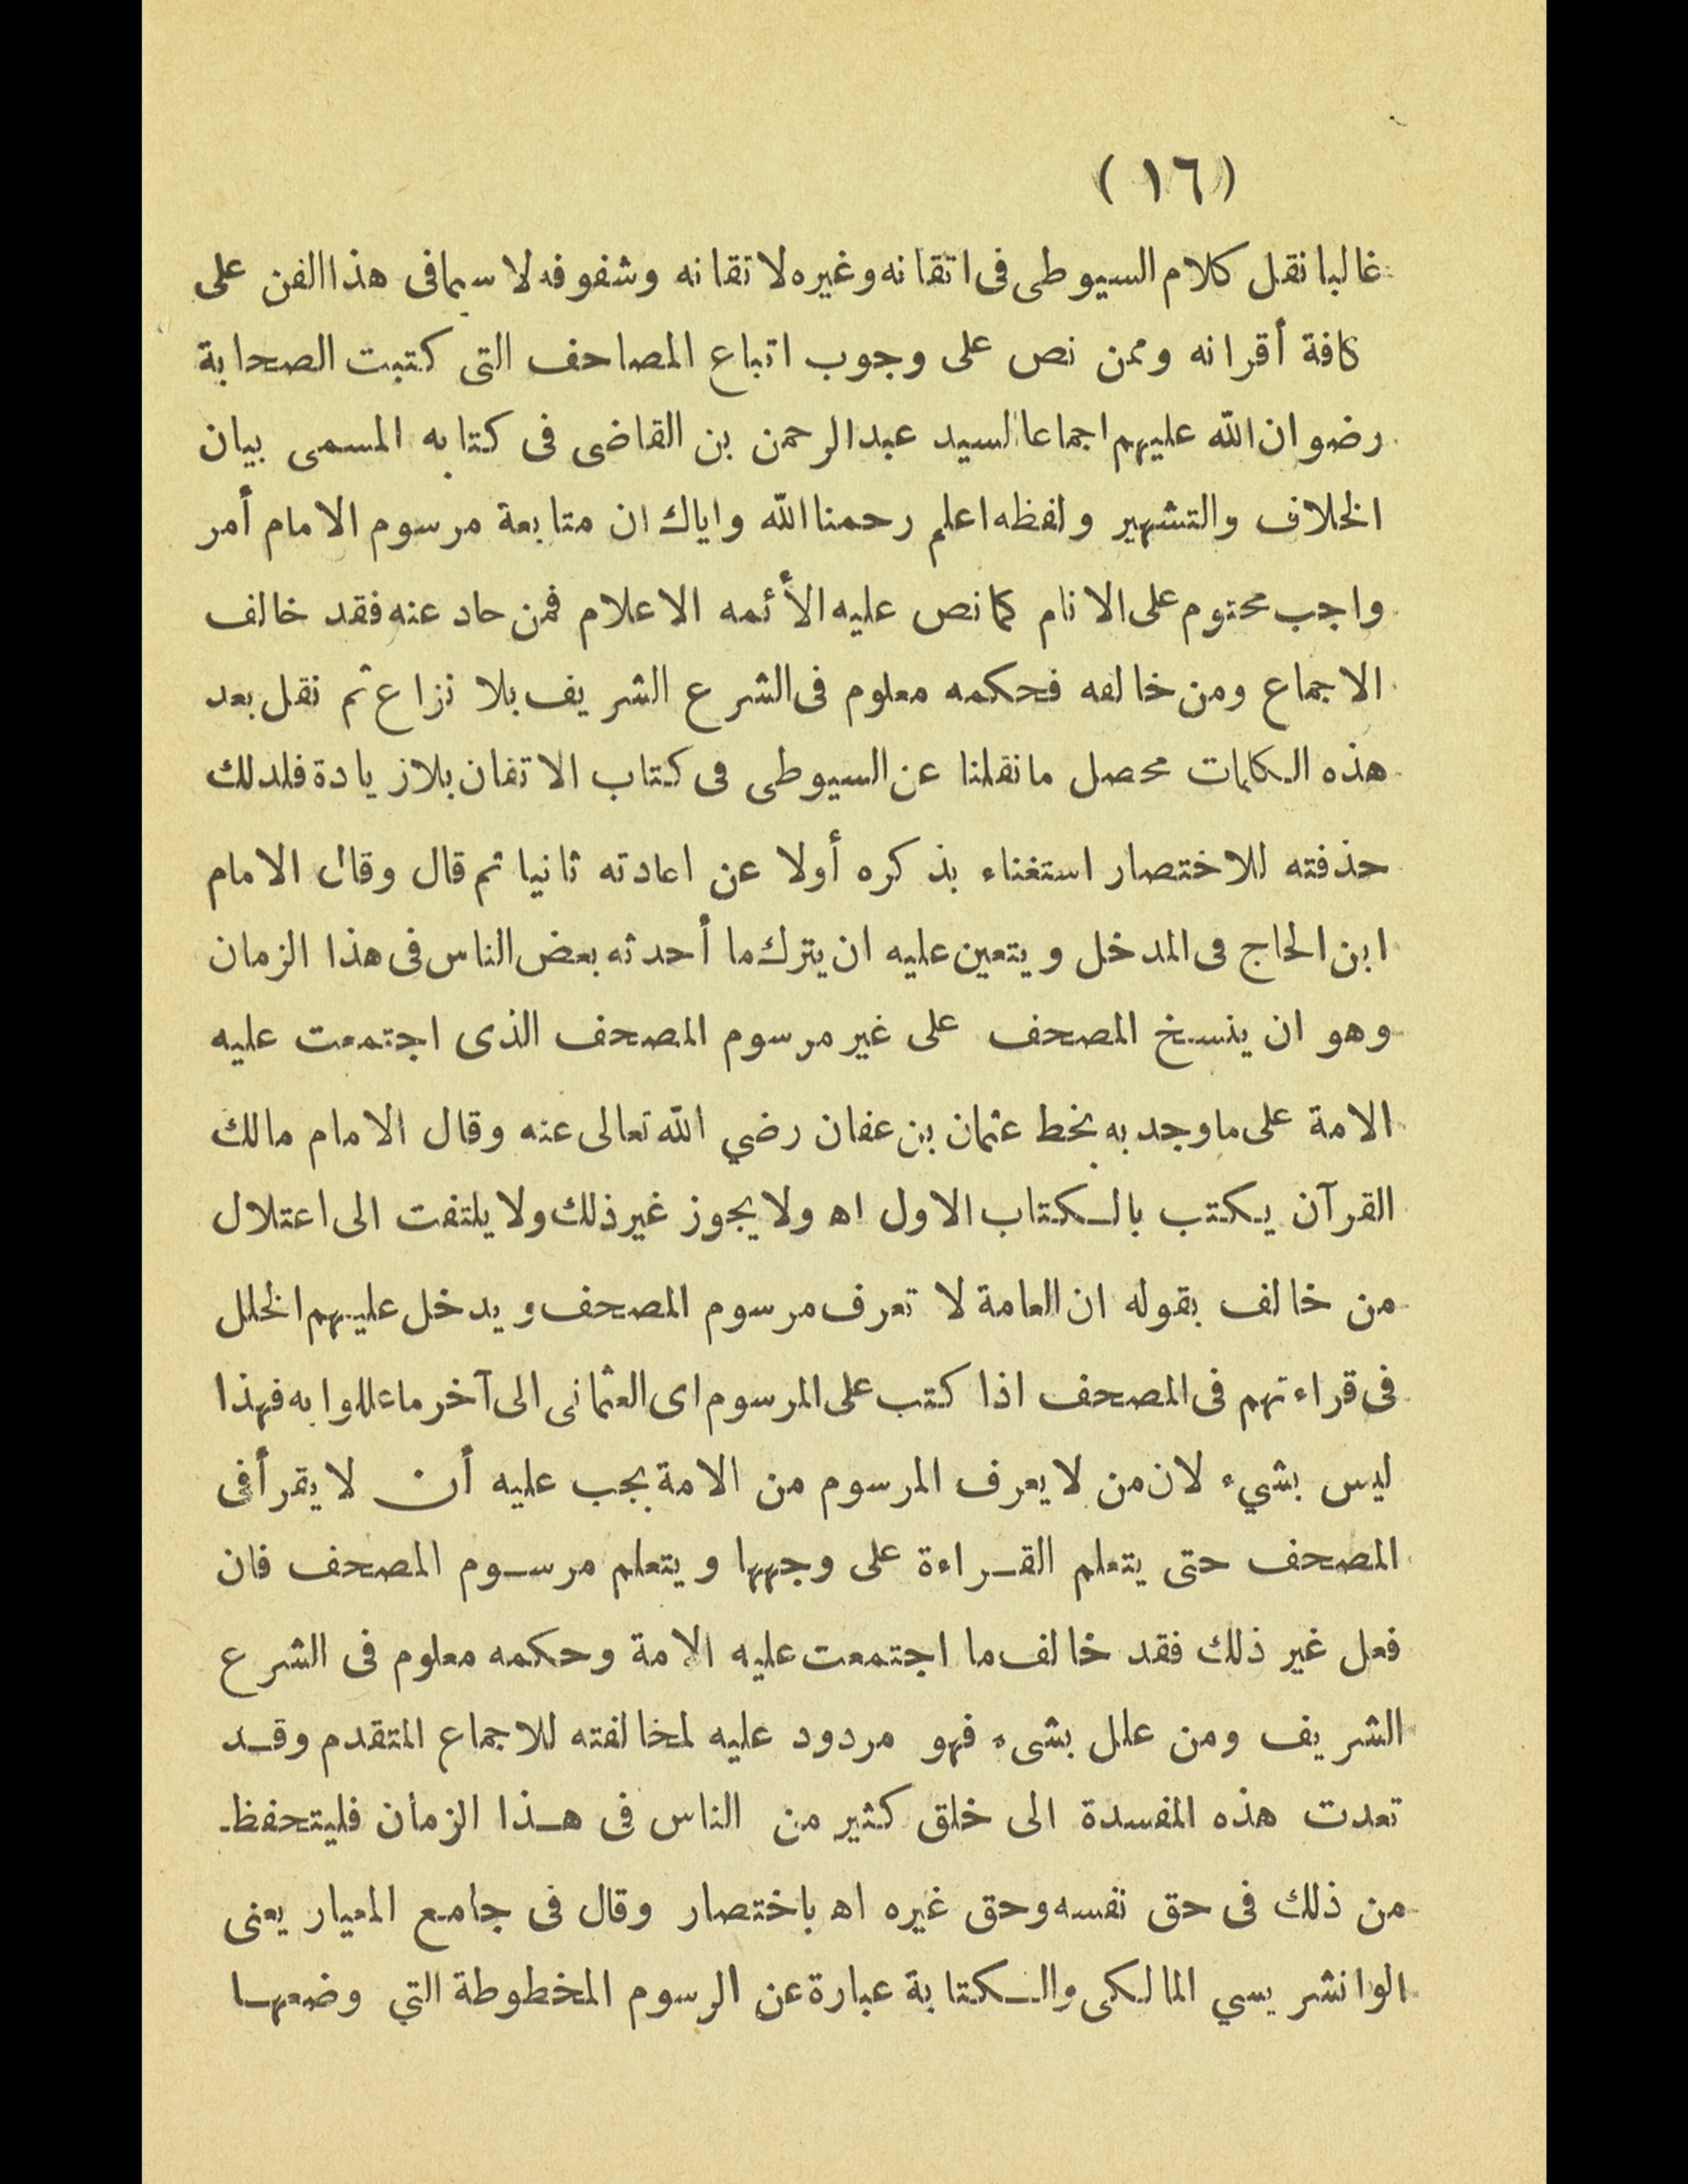 (١٦)
غالبا نقل كلام السيوطى فى اتقانه وغيره لاتقانه وشفوفه لاسيما فى هذا الفن على
كافة أقرانه وممن نص على وجوب اتباع المصاحف التى كتبت الصحابة
رضوان الله عليهم اجماعا السيد عبد الرحمن بن القاضى فى كتابه المسمى بيان
الخلاف والتشهير ولفظه اعلم رحمنا الله واياك ان متابعة مرسوم الامام أمر
واجب محتوم على الانام كما نص عليه الأئمه الاعلام فمن حاد عنه فقد خالف
الاجماع ومن خالفه فحكمه معلوم فى الشرع الشريف بلا نزاع ثم نقل بعد
هذه الكلمات محصل ما نقلنا عن السيوطى فى كتاب الاتقان بلا زيادة فلذلك
حذفته للاختصار استغناء بذكره أولا عن اعادته ثانيا ثم قال وقال الامام
ابن الحاج فى المدخل ويتعين عليه ان يترك ما أحدثه بعض الناس فى هذا الزمان
وهو ان ينسخ المصحف على غير مرسوم المصحف الذى اجتمعت عليه
الامة على ما وجد به بخط عثمان بن عفان رضي الله تعالى عنه وقال الامام مالك
القرآن يكتب بالكتاب الاول اه ولا يجوز غير ذلك ولا يلتفت الى اعتلال
من خالف بقوله ان العامة لا تعرف مرسوم المصحف ويدخل عليهم الخلل
فى قراءتهم فى المصحف اذا كتب على المرسوم اى العثمانى الى آخر ما عللوا به فهذا
ليس بشيء لان من لا يعرف المرسوم من الامة يجب عليه أن لا يقرأ فى
المصحف حتى يتعلم القراءة على وجهها ويتعلم مرسوم المصحف فان
فعل غير ذلك فقد خالف ما اجتمعت عليه الامة وحكمه معلوم فى الشرع
الشريف ومن علل بشىء فهو مردود عليه لمخالفته للاجماع المتقدم وقد
تعدت هذه المفسدة الى خلق كثير من الناس فى هذا الزمان فليتحفظ
من ذلك فى حق نفسه وحق غيره اه باختصار وقال فى جامع المعيار يعنى
الوانشريسي المالكى والكتابة عبارة عن الرسوم المخطوطة التي وضعها